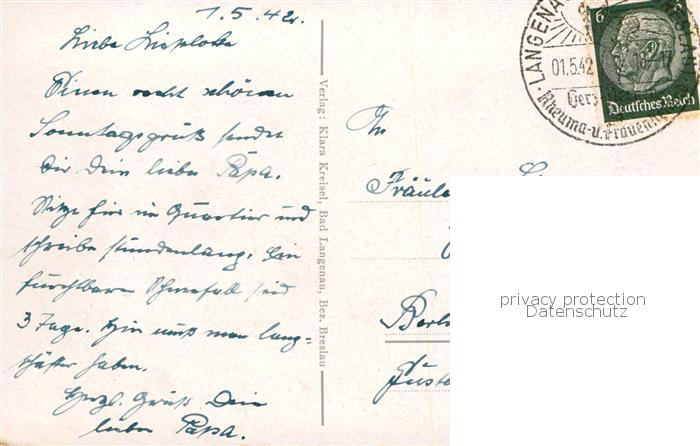 1.5.42.
Liebe Lieselotte
Einen recht schönen
Sonntagsgruß sendet
Dir Dein lieber Papa.
Sitze hier im Quartier und
schreibe stundenlang. Ein
furchtbarer Schneefall seid
3 Tage. Hier muß man lang-
schäfter haben.
Herzl. Gruß Dein
lieber Papa.
Verlag: Klara Kreisel, Bad Langenau, Bez. Breslau
An
Fräule
Berl
LANGENA
01.5.42
Herz
Rheuma-u. Frauenl
6
Deutsches Reich
privacy protection
Datenschutz